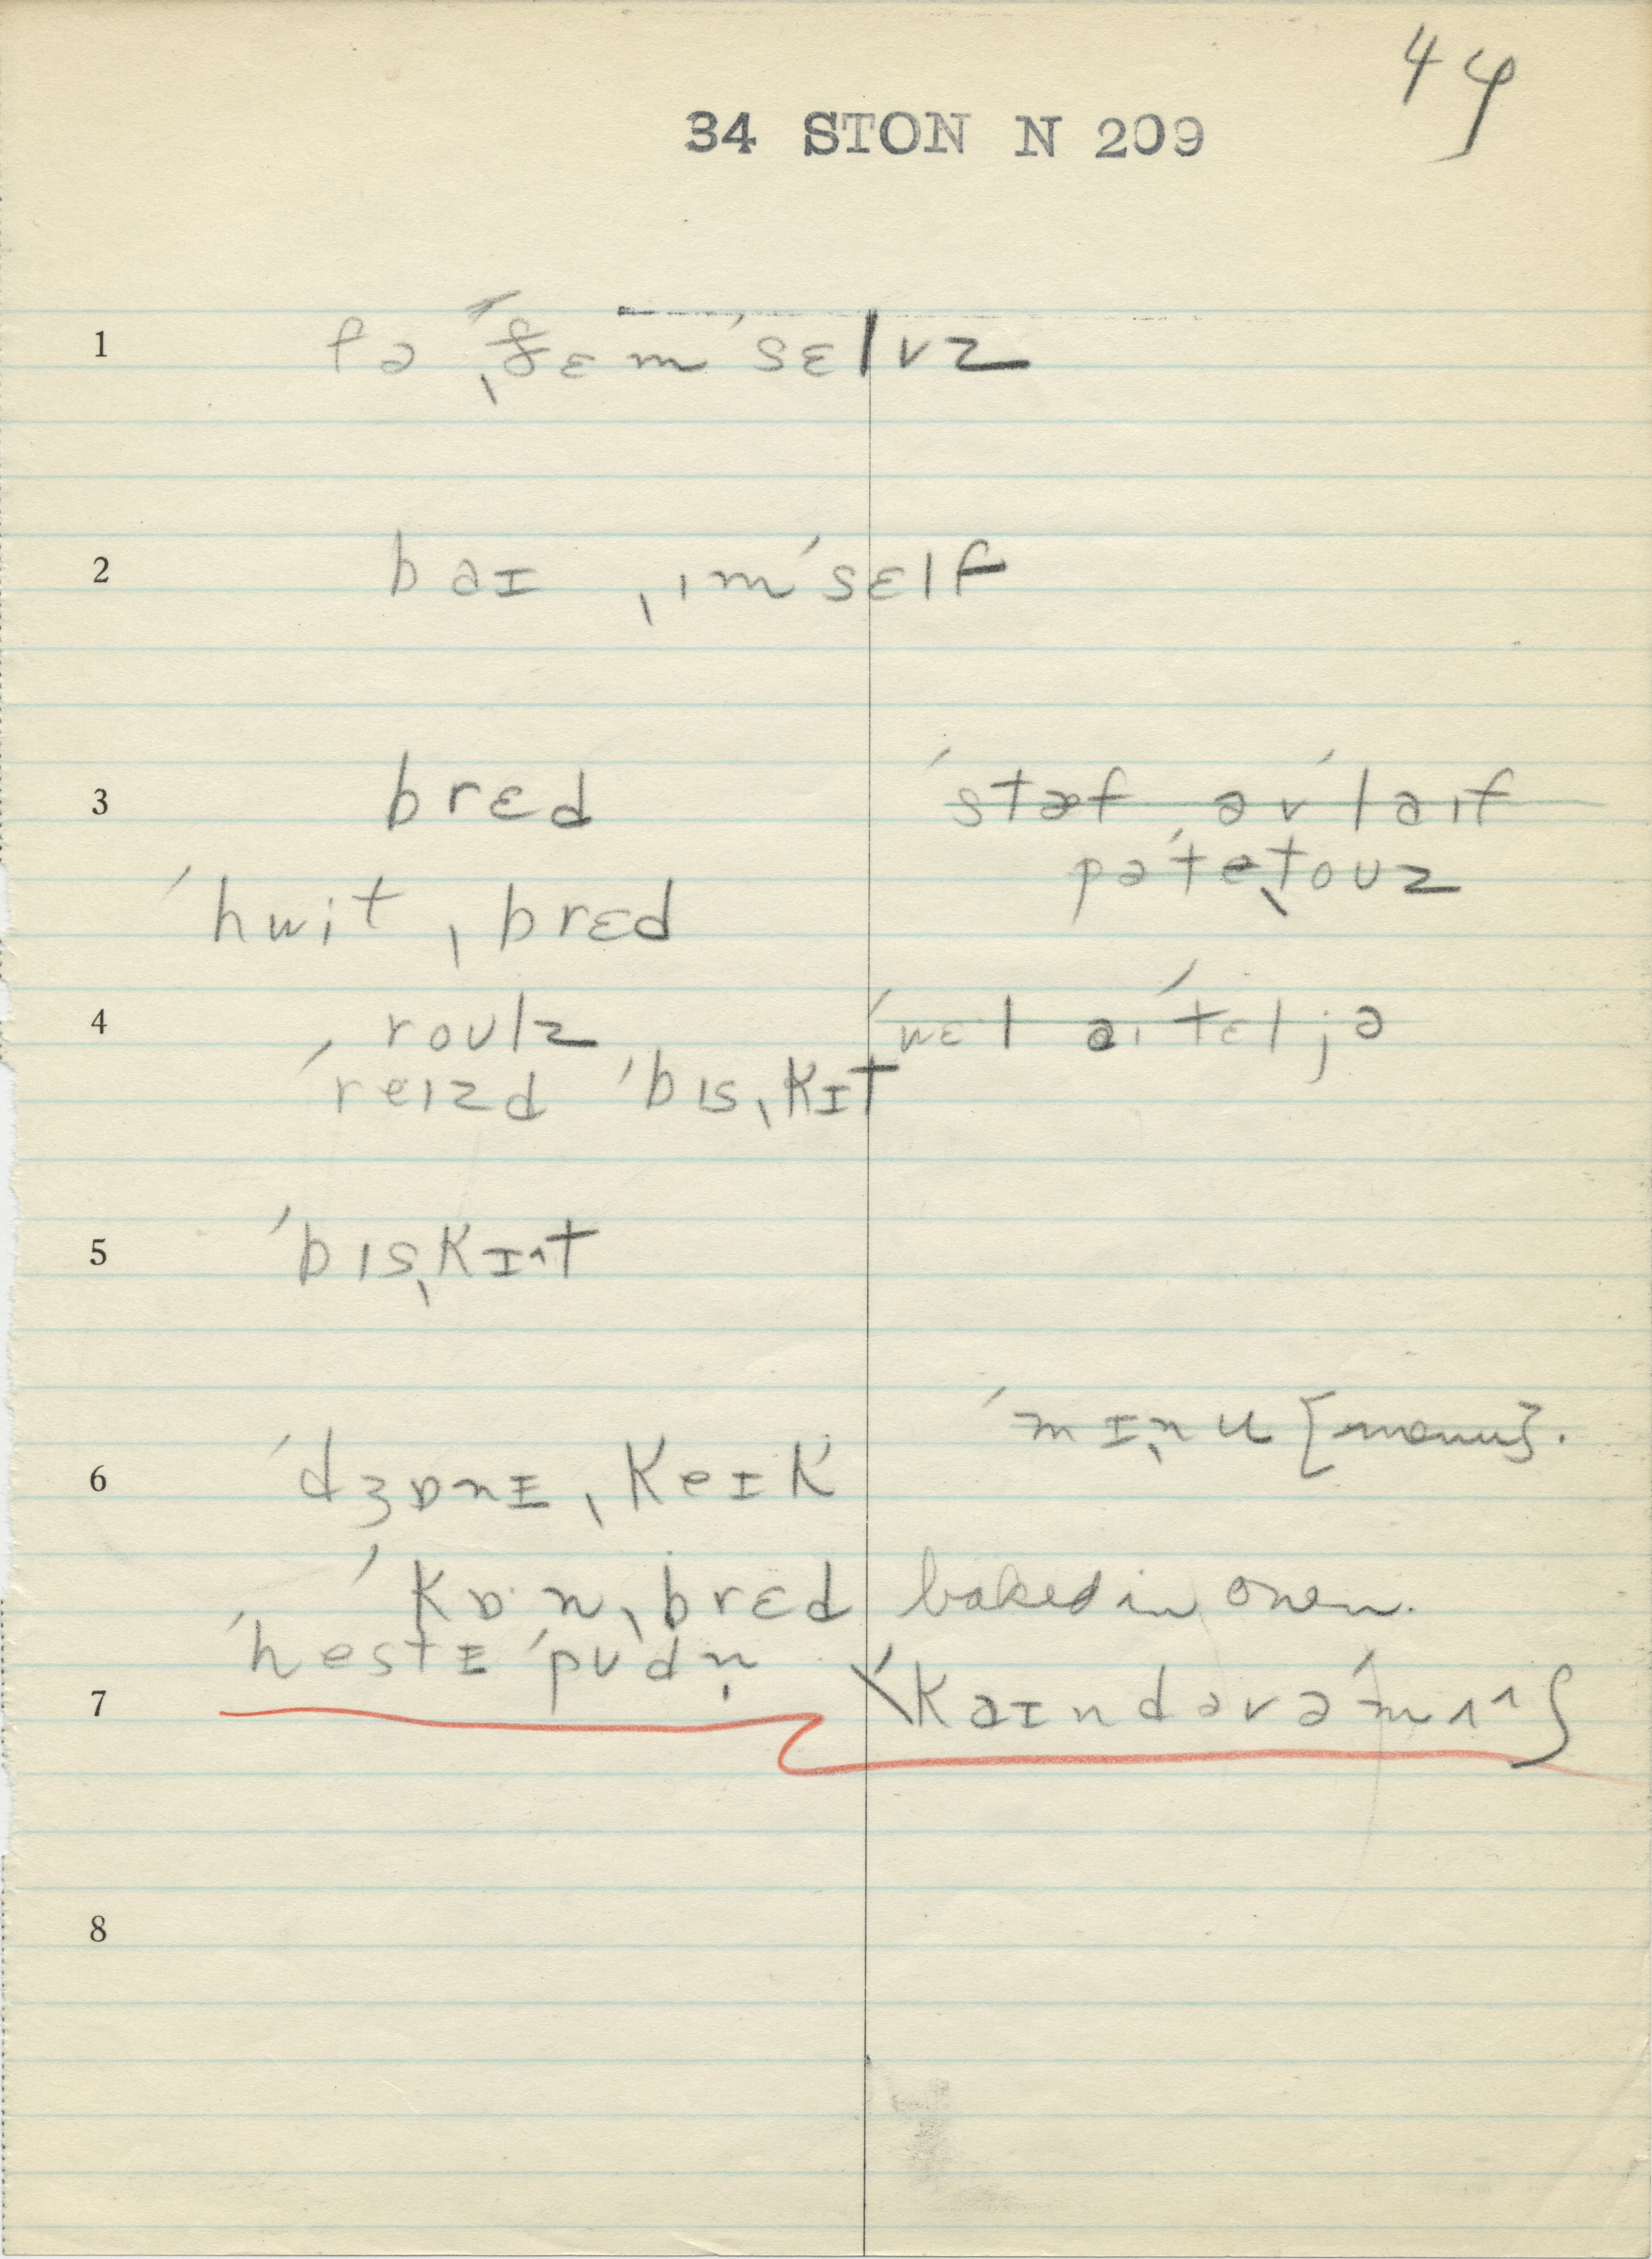 44
34 STON N 209
1 fə ˌðɛmˈsɛlvz
2 baɪ ˌɪmˈsɛlf
3 brɛd ˈstæf əvˈlaɪf
pəˈteˌtouz
ˈhwit ˌbrɛd
4 roulz ˈwɛl aɪˈtɛl jə
ˈreɪzd ˈbɪsˌkɪt
5 ˈbɪsˌkɪ^t
ˈmɪˌnu [menu].
6 ˈdʒɒnɪ ˌkeɪk
ˈkɒ·nˌbrɛd baked in oven.
ˈhestɪ ˈpudn̩
7 ˈkaɪndəvə
8